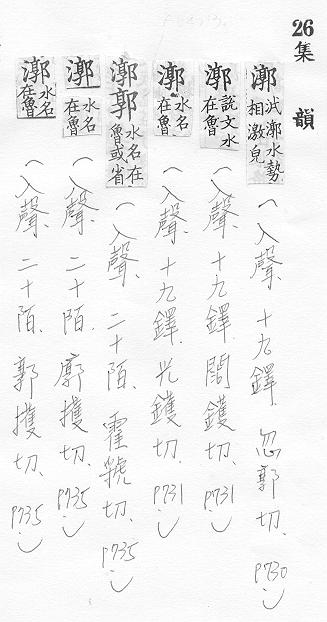 26 集韻
漷 泧漷水勢相激皃 (入聲、十九鐸、忽郭切、P730)
漷 說文水在魯 (入聲、十九鐸、闊鑊切、P731)
漷 水名在魯 (入聲、十九鐸、光鑊切、P731)
漷 郭 水名在魯或省 (入聲、二十陌、霍虢切、P735)
漷 水名在魯 (入聲、二十陌、廓擭切、P735)
漷 水名在魯 (入聲、二十陌、郭擭切、P735)